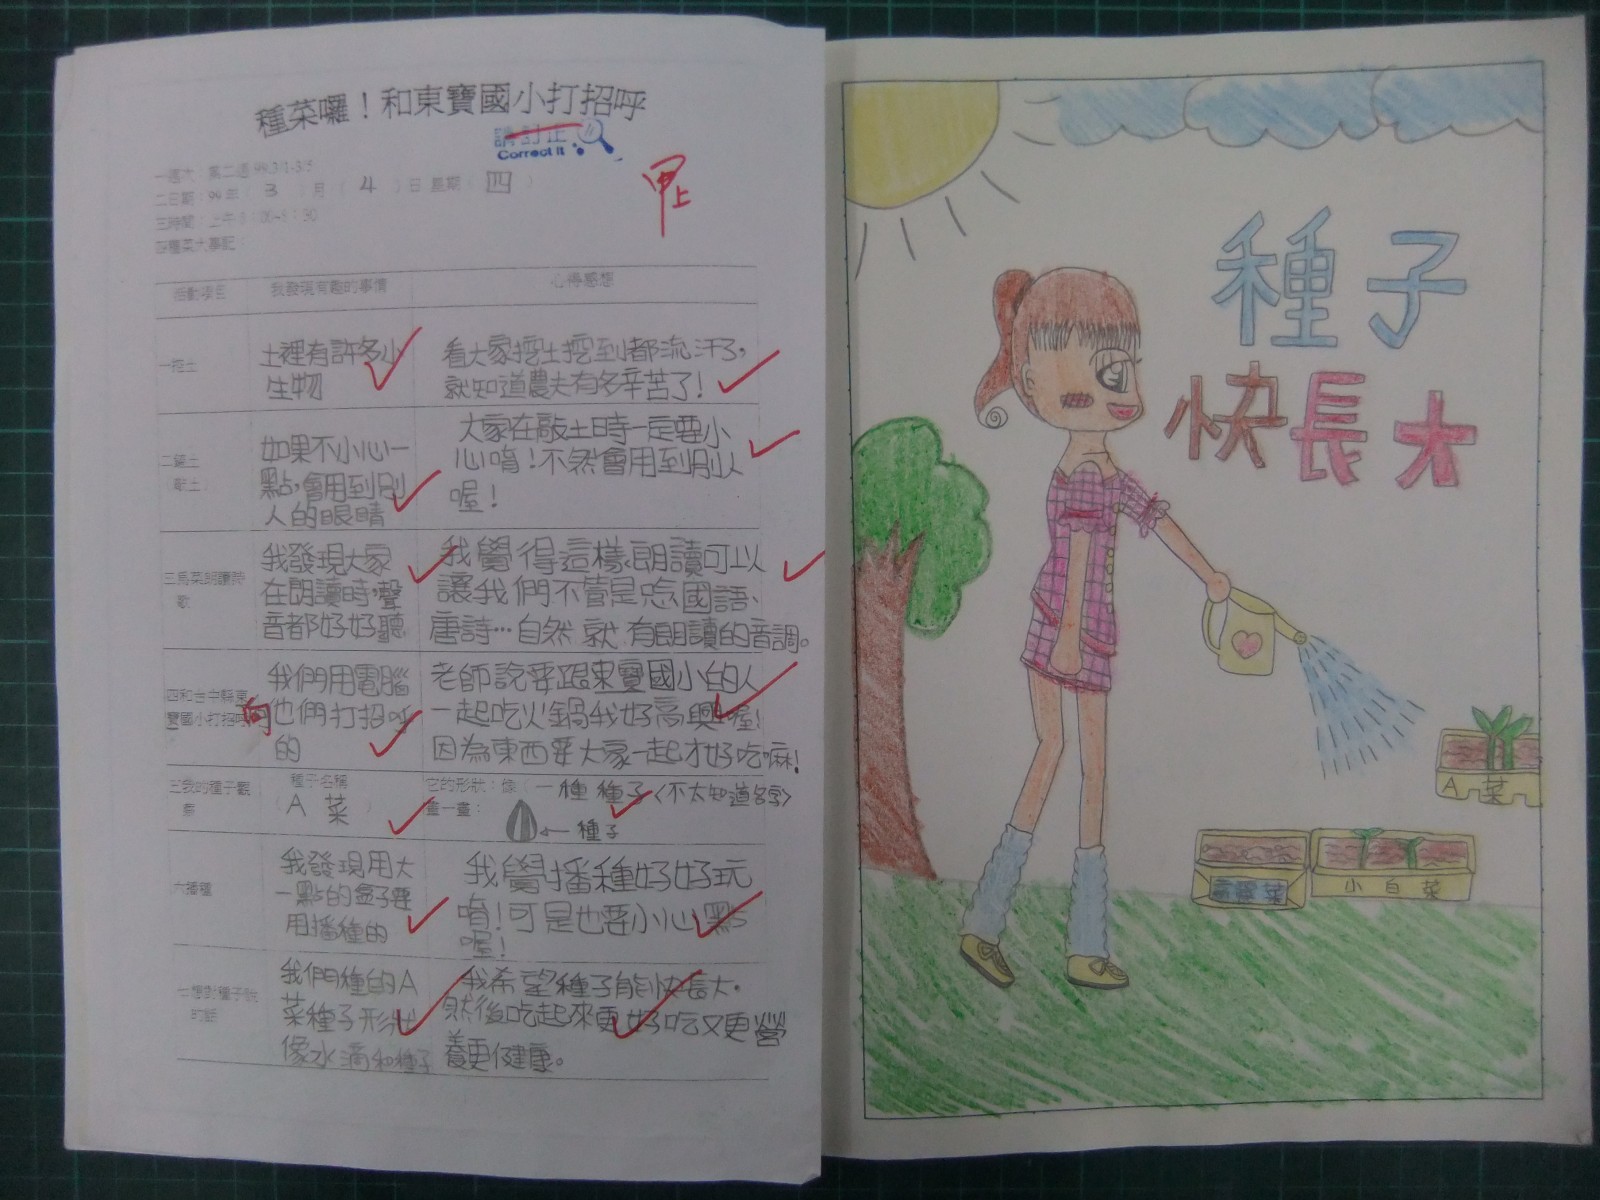 種菜囉！和東寶國小打招呼
請訂正
Correct it
甲上
一週次：第二週 99.3/1-3/5
二日期：99年（ 3 ）月（ 4 ）日 星期（ 四 ）
三時間：上午8：00-8：30
四種菜大事記：
活動項目 我發現有趣的事情 心得感想
一挖土
土裡有許多小
生物
看大家挖土挖到都流汗了，
就知道農夫有多辛苦了！
如果不小心一
點，會用到別
人的眼睛
大家在敲土時一定要小
心唷！不然會用到別人
喔！
三為菜朗讀詩
歌
我發現大家
在朗讀時，聲
音都好好聽
我覺得這樣朗讀可以
讓我們不管是唸國語、
唐詩…自然 就 有朗讀的音調。
四和台中縣東
寶國小打招呼
我們用電腦
向他們打招呼
的
老師說要跟東寶國小的人
一起吃火鍋我好高興喔！
因為東西要大家一起才好吃嘛！
五我的種子觀
察
種子名稱
（ A 菜 ）
它的形狀：像（一種 種子〈不太知道名字〉
畫一畫：
←種子
六播種
我發現用大
一點的盒子要
用播種的
我覺播種好好玩
唷！可是也要小心點
喔！
七想對種子說
的話
我們種的A
菜種子形狀
像水滴和種子
我希望種子能快快長大，
然後吃起來更好吃又更營
養更健康。
種子
快長大
A 菜
小白菜